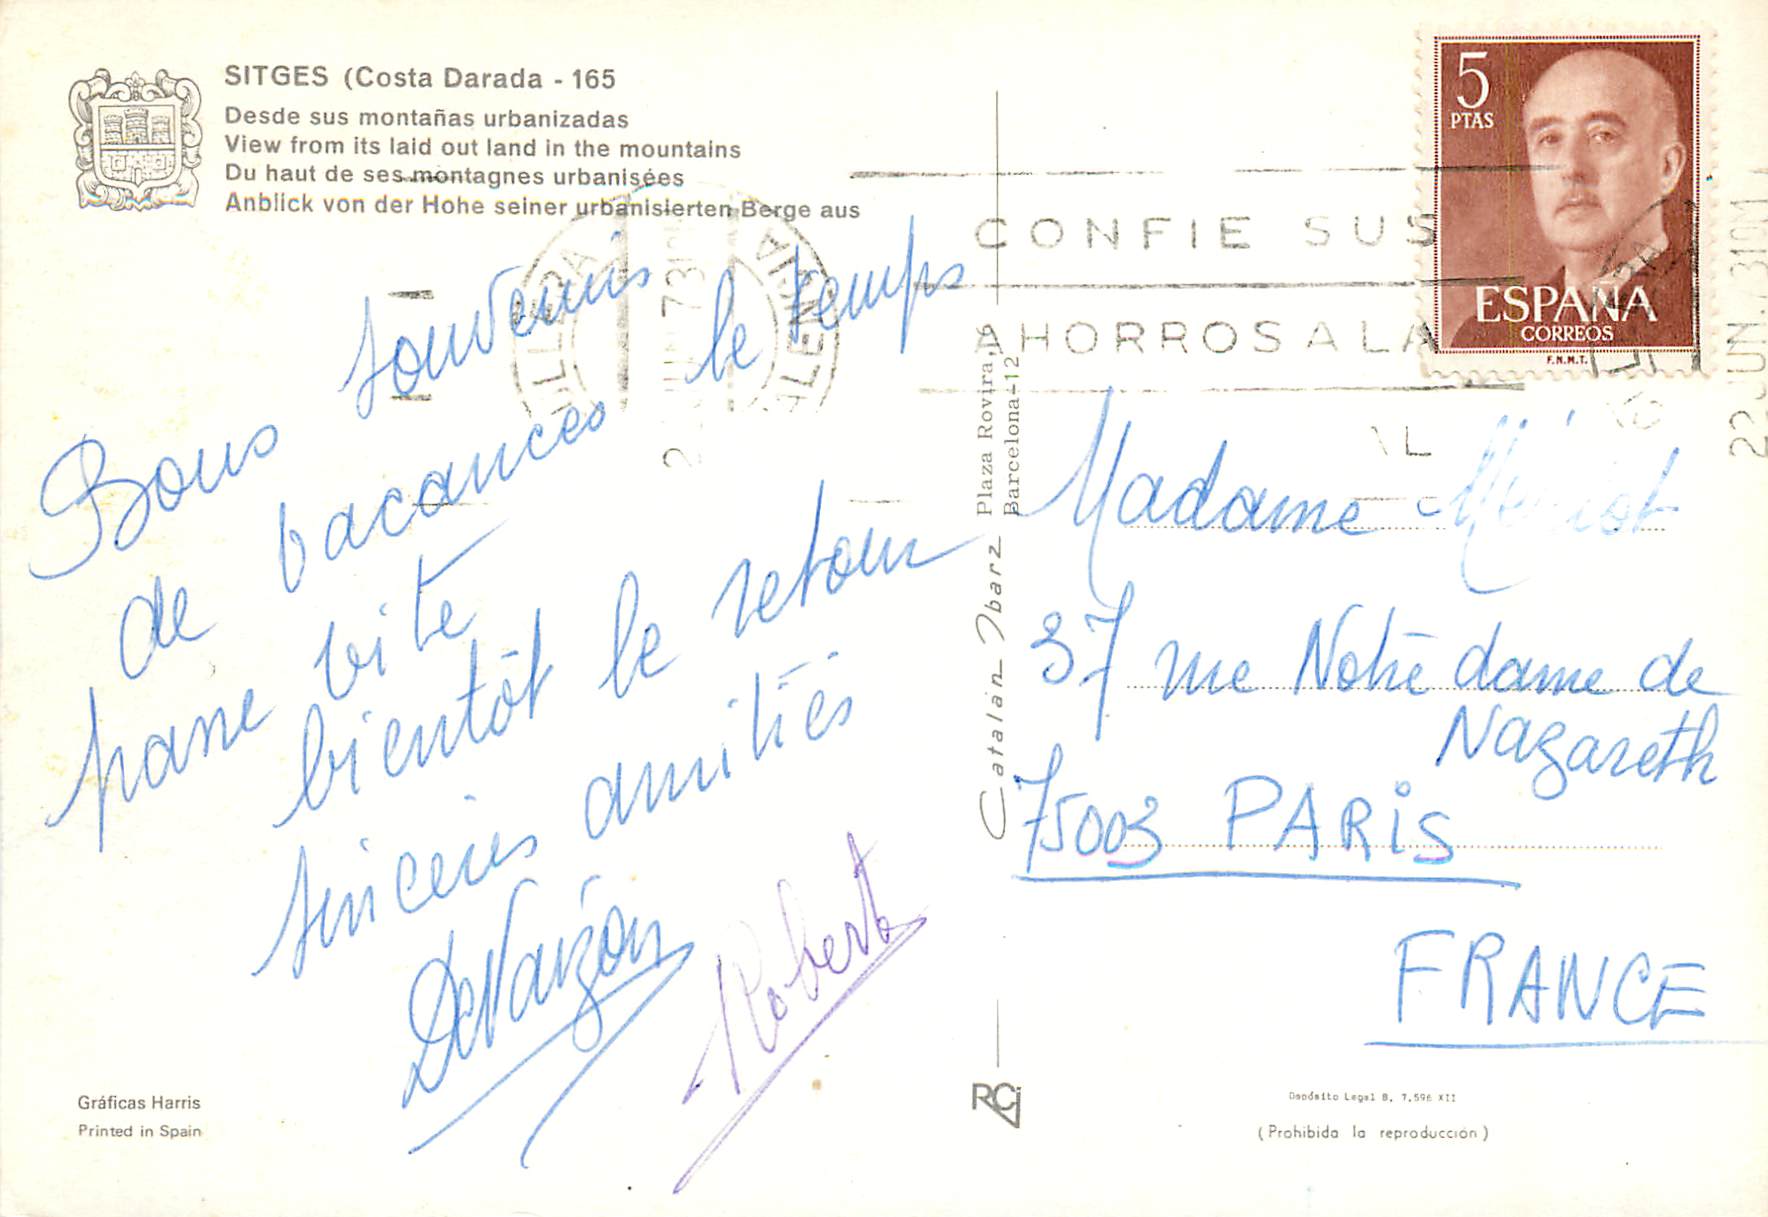 SITGES (Costa Darada - 165
Desde sus montañas urbanizadas
View from its laid out land in the mountains
Du haut de ses montagnes urbanisées
Anblick von der Hohe seiner urbanisierten Berge aus
Bons souvenirs
de vacances le temps
passe vite
bientôt le retour
sincères amitiés
Robert
Gráficas Harris
Printed in Spain
Catalán Ibarz
Plaza Rovira,
Barcelona-12
RCI
5
PTAS
ESPAÑA
CORREOS
F.N.M.T.
CONFIE SUS
AHORROS A LA
22 JUN.
Madame
37 rue Notre dame de
Nazareth
75003 PARIS
FRANCE
Depósito Legal B. 7.596 XII
(Prohibida la reproducción)